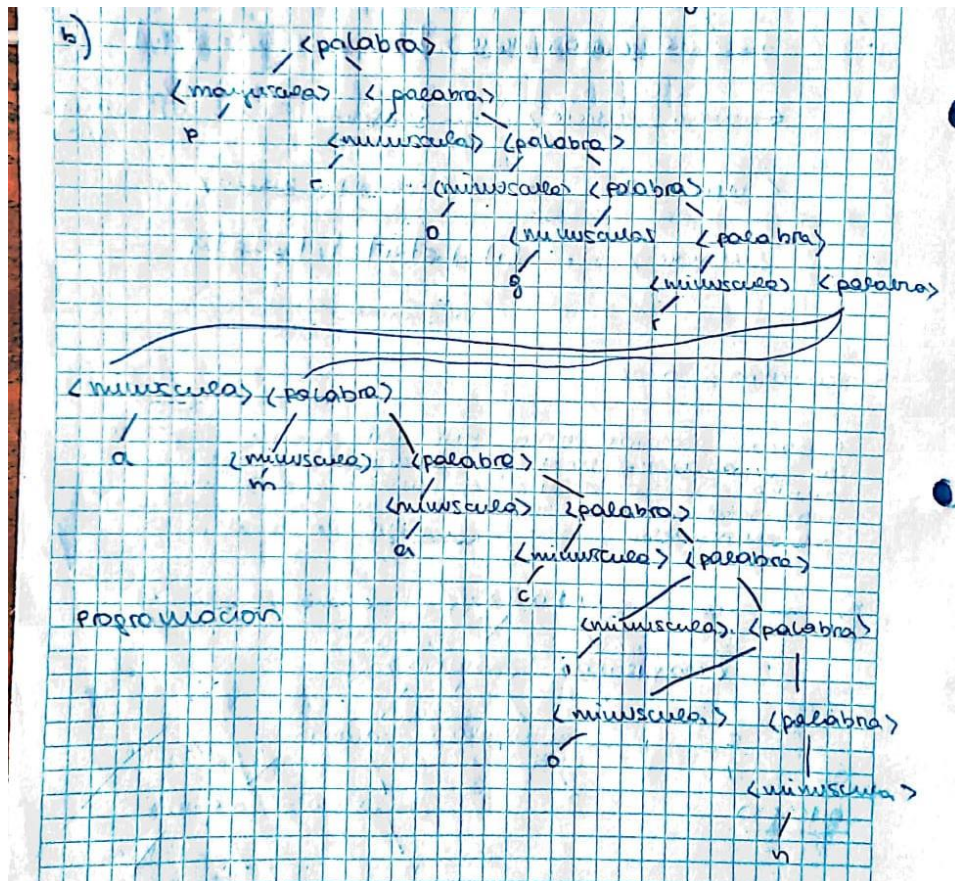 b)
<palabra>
<mayuscula> <palabra>
p
<minuscula> <palabra>
r
<minuscula> <palabra>
o
<minuscula> <palabra>
g
<minuscula> <palabra>
r
<minuscula> <palabra>
a
<minuscula> <palabra>
m
<minuscula> <palabra>
a
<minuscula> <palabra>
c
<minuscula> <palabra>
i
<minuscula> <palabra>
o
<minuscula>
n
programacion